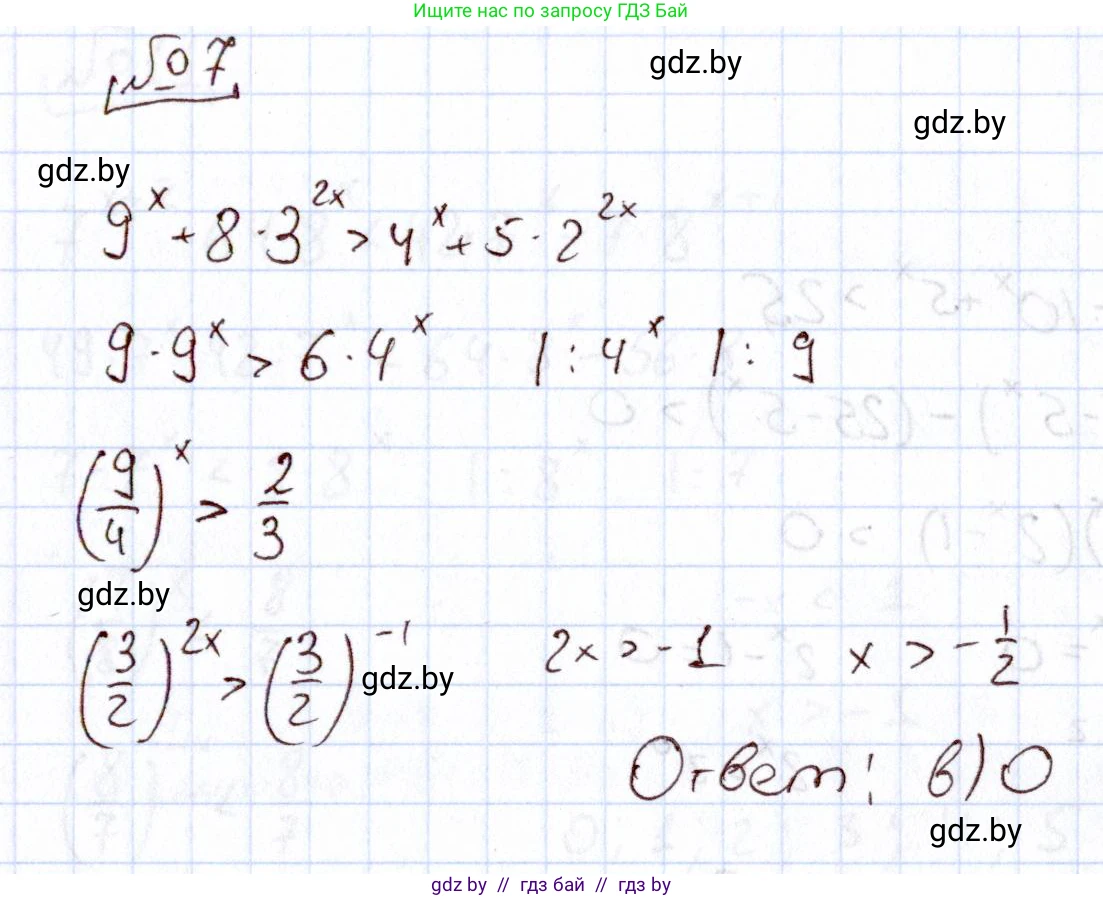 Ищите нас по запросу ГДЗ Бай
№ 7
gdz.by
gdz.by
gdz.by
9^x + 8 · 3^{2x} > 4^x + 5 · 2^{2x}
9 · 9^x > 6 · 4^x |: 4^x |: 9
(9/4)^x > 2/3
gdz.by
(3/2)^{2x} > (3/2)^{-1} 2x > -1 x > -1/2
gdz.by
Ответ: в) 0
gdz.by
gdz by // гдз бай // гдз by